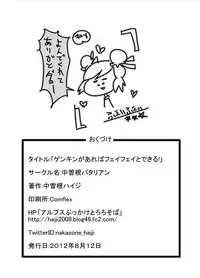 よんでくれて
ありがとダヨー
おくづけ
タイトル「ゲンキンがあればフェイフェイとできる!」
サークル名:中曽根バタリアン
著作:中曽根ハイジ
印刷所:Comflex
HP「アルプスぶっかけとろろそば」
http://haiji2008.blog46.fc2.com/
TwitterID:nakasone_haiji
発行日:2012年8月12日